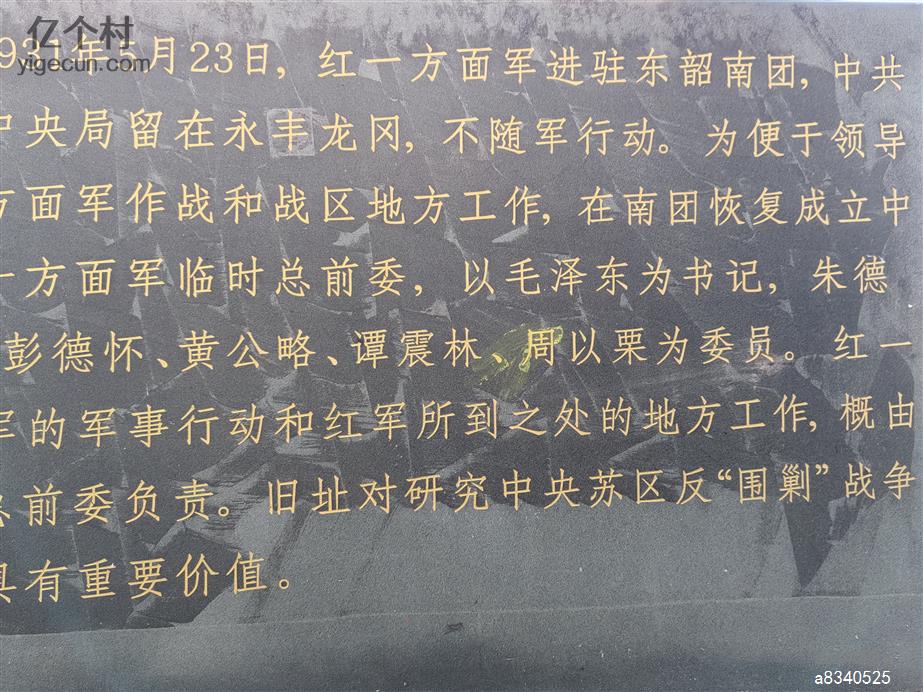 亿个村
yigecun.com
931年5月23日，红一方面军进驻东韶南团，中共
中央局留在永丰龙冈，不随军行动。为便于领导
方面军作战和战区地方工作，在南团恢复成立中
一方面军临时总前委，以毛泽东为书记，朱德
彭德怀、黄公略、谭震林、周以栗为委员。红一
军的军事行动和红军所到之处的地方工作，概由
总前委负责。旧址对研究中央苏区反“围剿”战争
具有重要价值。
a8340525